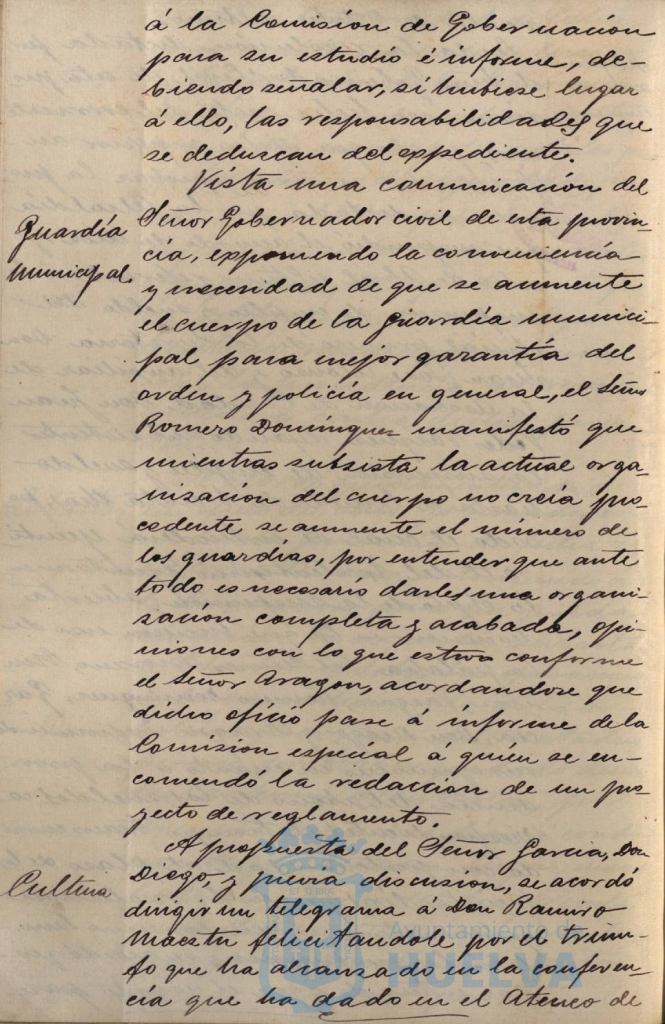 á la Comisión de Gobernación
para su estudio é informe, de-
biendo señalar, si hubiese lugar
á ello, las responsabilidades que
se deduzcan del expediente.
Guardía
Municipal
Vista una comunicación del
Señor Gobernador civil de esta provin-
cía, exponiendo la conveniencia
y necesidad de que se aumente
el cuerpo de la Guardía munici-
pal para mejor garantía del
orden y policía en general, el Señor
Romero Domínguez manifestó que
mientras subsista la actual orga-
nización del cuerpo no creía pro-
cedente se aumente el número de
los guardias, por entender que ante
todo es necesario darles una organi-
zación completa y acabada, opi-
niones con lo que estuvo conforme
el Señor Aragon, acordandose que
dicho oficio pase á informe de la
Comision especial á quien se en-
comendó la redacción de un pro-
yecto de reglamento.
Cultura
A propuesta del Señor Garcia, Don
Diego, y previa discusion, se acordó
dirigir un telegrama á Don Ramiro
Maestu felicitandole por el triun-
fo que ha alcanzado en la conferen-
cía que ha dado en el Ateneo de
Ayuntamiento de
HUELVA